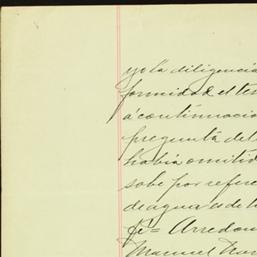 yo la diligencia
formidad el ter
á continuacio
pregunta del
había omitid
sobe por refere
de agua es de t
Arredon
Manuel